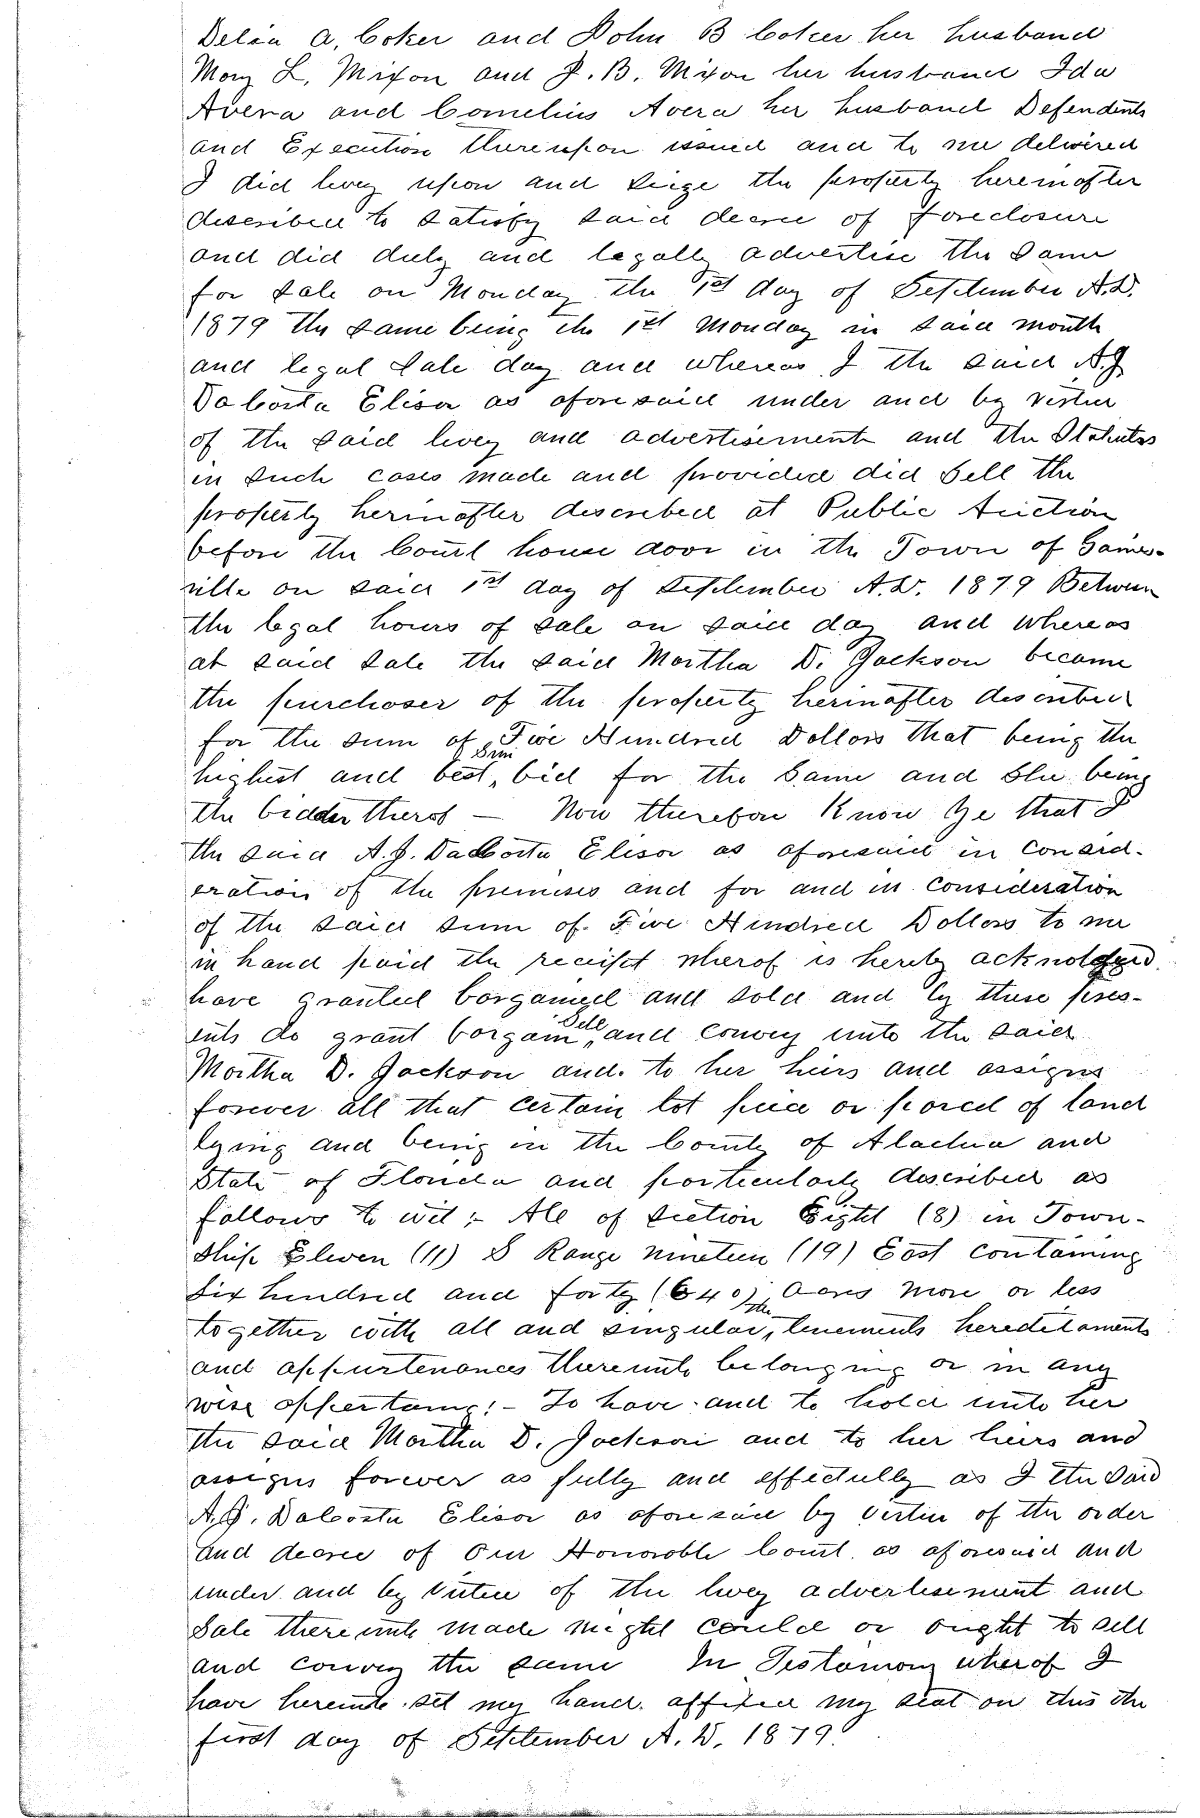 Delia A, Coker and John B Coker her husband
Mary L, Mixon and J. B. Mixon her husband Ida
Avera and Cornelius Avera her husband Defendents
and Execution thereupon issued and to me delivered
I did levy upon and seize the property hereinafter
described to satisfy said decree of foreclosure
and did duly and legally advertise the same
for sale on Monday the 1st day of September A.D.
1879 the same being the 1st Monday in said month
and legal sale day and whereas I the said A.J
DaCosta Elisor as aforesaid under and by virtue
of the said levy and advertisement and the Statutes
in such cases made and provided did sell the
property herinafter described at Public Auction
before the Court house door in the Town of Gaines-
ville on said 1st day of September A.D. 1879 Between
the legal hours of sale on said day and whereas
at said sale the said Martha D. Jackson became
the purchaser of the property herinafter described
for the sum of Five Hundred Dollars that being the
highest and best, bid for the same and she being
the bidder therof — Now therefore Know Ye that I
the said A.J. DaCosta Elisor as aforesaid in consid-
eration of the premises and for and in consideration
of the said sum of Five Hundred Dollars to me
in hand paid the receipt wherof is hereby
have granted bargained and sold and by these pres-
ents do grant bargain Sell and convey unto the said
Martha D. Jackson and to her heirs and assigns
forever all that certain lot piece or parcel of land
lying and being in the County of Alachua and
State of Florida and particularly described as
follows to wit ;- All of Section Eight (8) in Town-
ship Eleven (11) S Range nineteen (19) East containing
Six hundred and forty (640) Acres more or less
together with all and singular, the tenements hereditaments
and appurtenances thereunto belonging or in any
wise appertaing:- To have and to hold unto her
the said Martha D. Jackson and to her heirs and
assigns forever as fully and effectully as I the said
A.J. DaCosta Elisor as aforesaid by virtue of the order
and decree of Our Honorable Court as aforesaid and
under and by virtue of the levy advertisement and
Sale thereunto made might could or ought to sell
and convey the same In Testamony wherof I
have hereunto set my hand affixed my seal on this the
first day of September A.D. 1879.